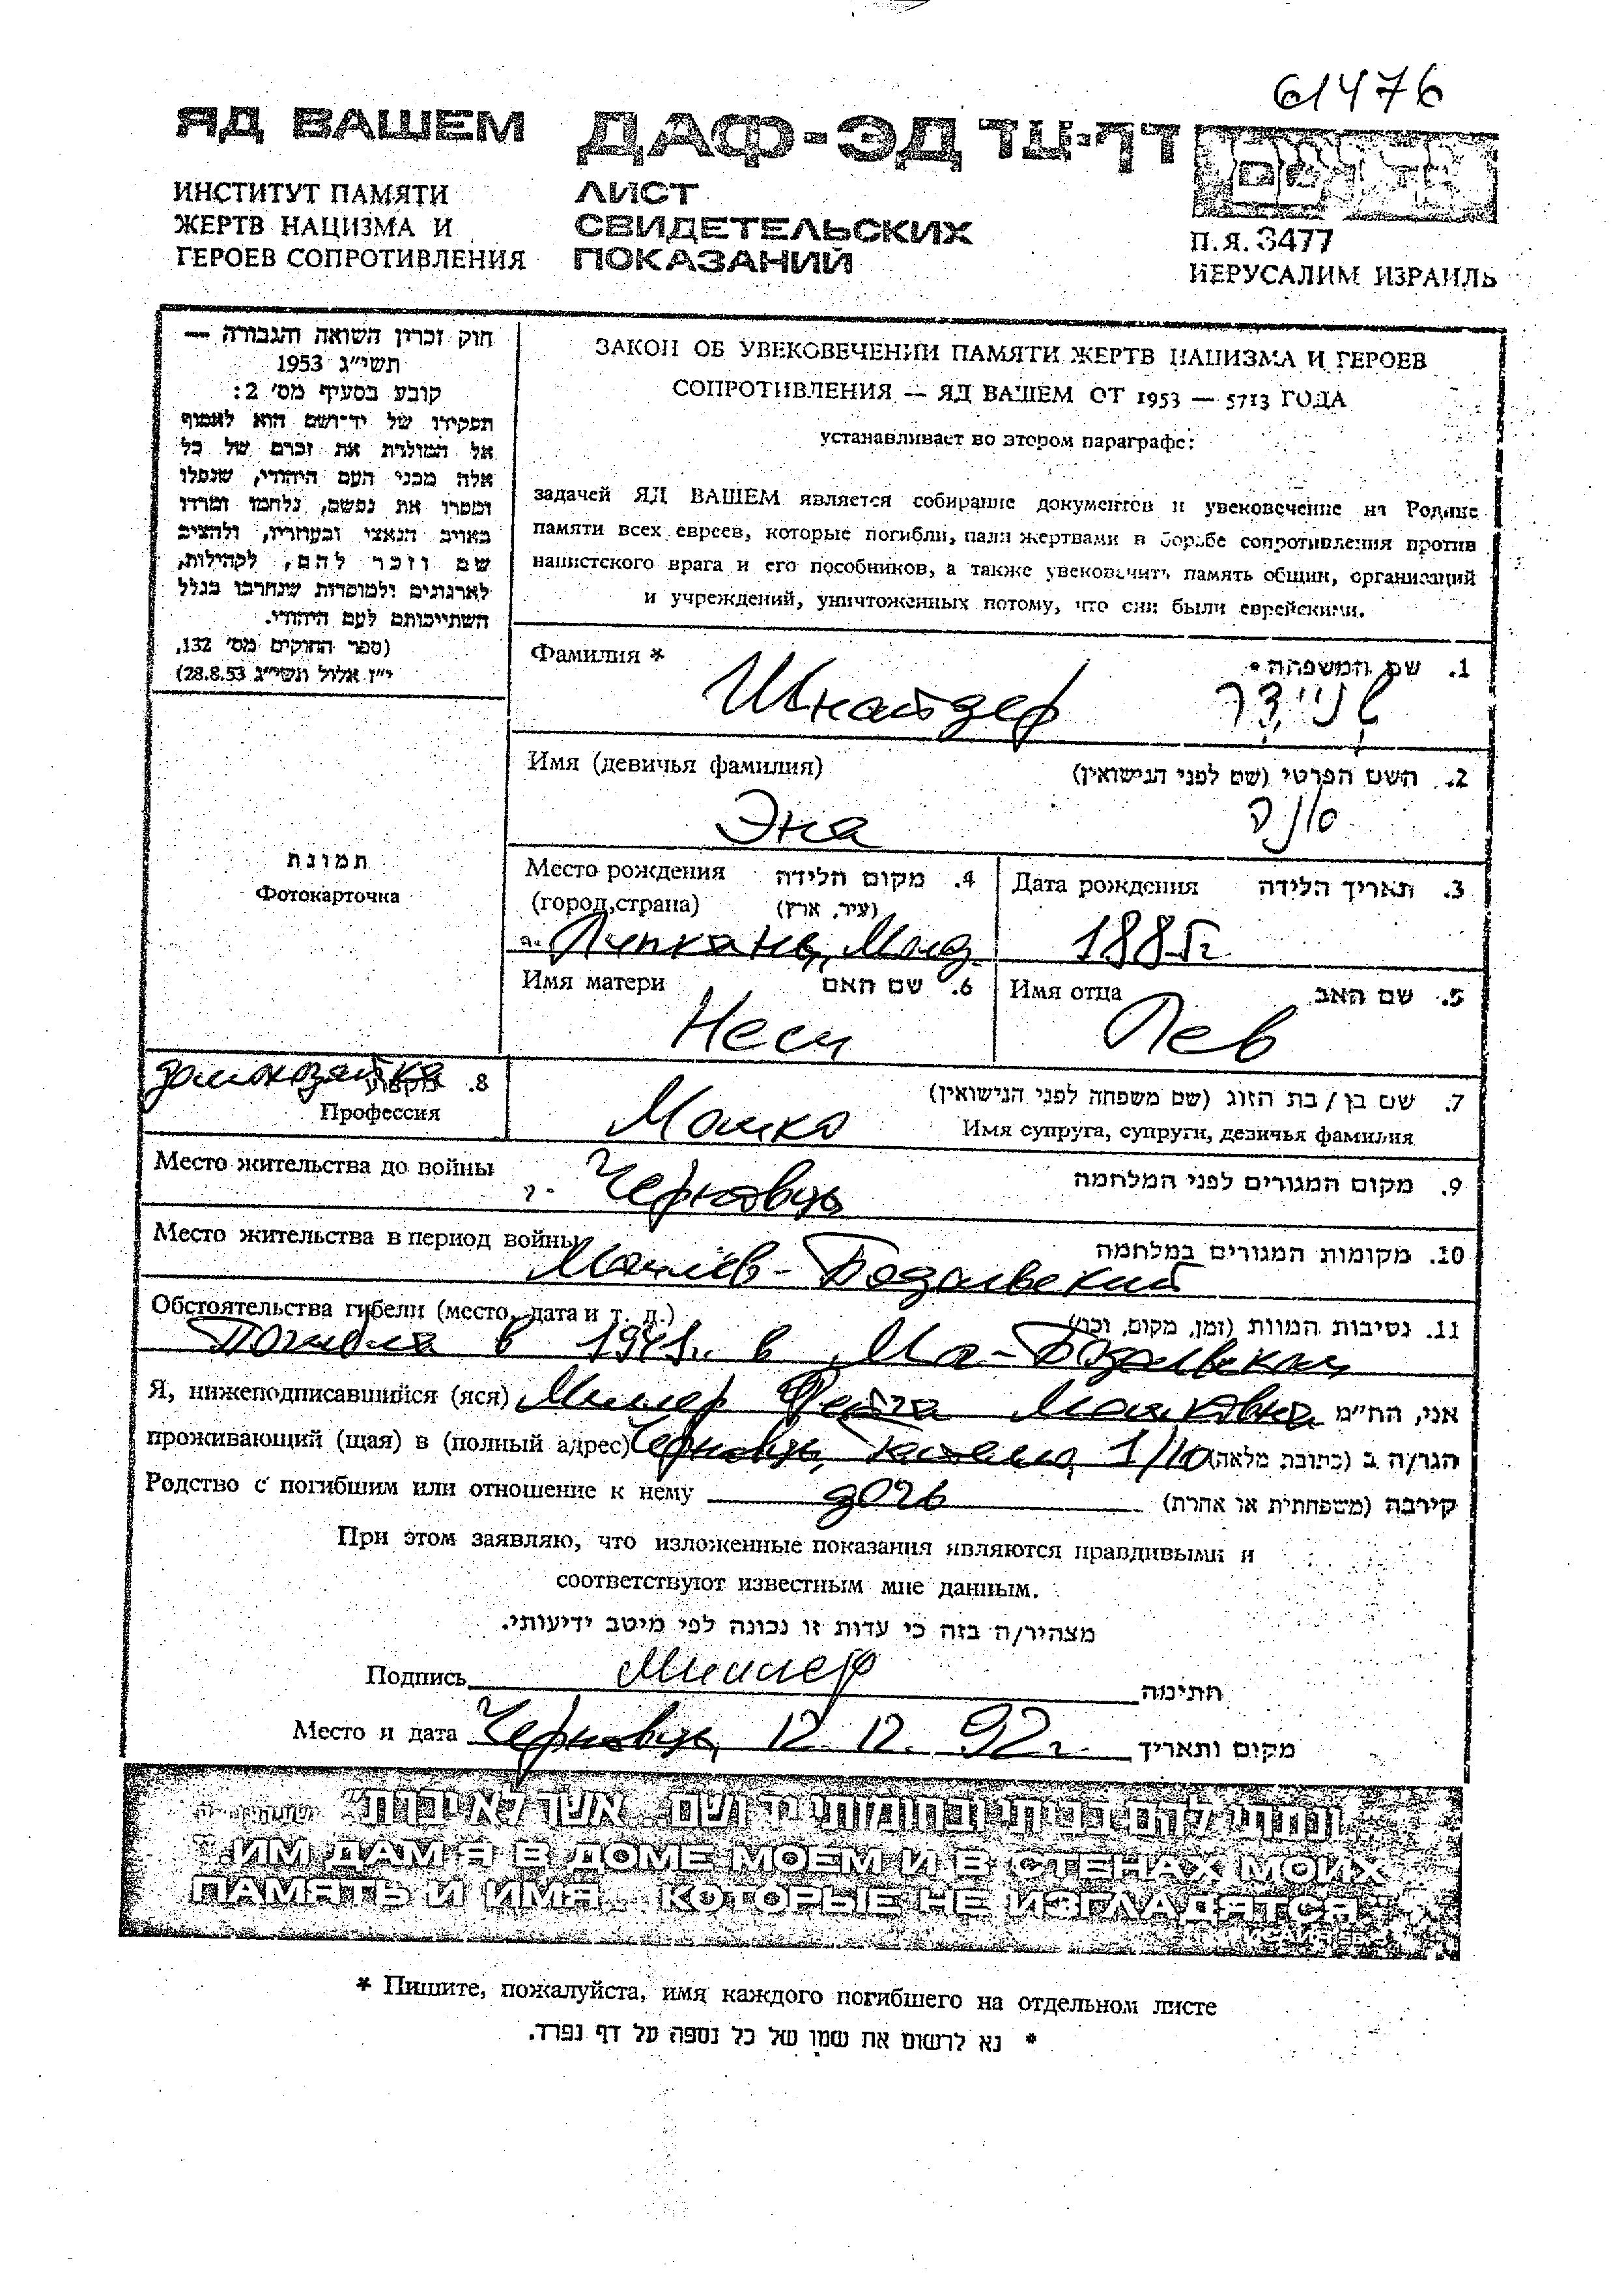 61476
ЯД ВАШЕМ ДАФ-ЭД דף-עד
ИНСТИТУТ ПАМЯТИ
ЖЕРТВ НАЦИЗМА И
ГЕРОЕВ СОПРОТИВЛЕНИЯ
ЛИСТ
СВИДЕТЕЛЬСКИХ
ПОКАЗАНИЙ
П.Я. 3477
ИЕРУСАЛИМ ИЗРАИЛЬ
חוק זכרון השואה והגבורה —
תשי״ג 1953
קובע בסעיף מס׳ 2:
תפקידו של יד־ושם הוא לאסוף
אל המולדת את זכרם של כל
אלה מבני העם היהודי, שנפלו
ומסרו את נפשם, נלחמו ומרדו
באויב הנאצי ובעוזריו, ולהציב
שם וזכר להם, לקהילות,
לארגונים ולמוסדות שנחרבו בגלל
השתייכותם לעם היהודי.
(ספר החוקים מס׳ 132,
י״ז אלול תשי״ג 28.8.53)
ЗАКОН ОБ УВЕКОВЕЧЕНИИ ПАМЯТИ ЖЕРТВ НАЦИЗМА И ГЕРОЕВ
СОПРОТИВЛЕНИЯ — ЯД ВАШЕМ ОТ 1953 — 5713 ГОДА
устанавливает во втором параграфе:
задачей ЯД ВАШЕМ является собирание документов и увековечение на Родине
памяти всех евреев, которые погибли, пали жертвами в борьбе сопротивления против
нацистского врага и его пособников, а также увековечить память общин, организаций
и учреждений, уничтоженных потому, что они были еврейскими.
Фамилия * 1. שם המשפחה *
Шнайдер שניידר
Имя (девичья фамилия) 2. השם הפרטי (שם לפני הנישואין)
Эна
תמונת
Фотокарточка
Место рождения 4. מקום הלידה
(город,страна) (עיר, ארץ)
Липканы, Молд.
Дата рождения 3. תאריך הלידה
1885г.
Имя матери 6. שם האם
Неси
Имя отца 5. שם האב
Лев
домохозяйка 8.
Профессия
7. שם בן / בת הזוג (שם משפחה לפני הנישואין)
Мошко Имя супруга, супруги, девичья фамилия
Место жительства до войны г. Черновцы 9. מקום המגורים לפני המלחמה
Место жительства в период войны 10. מקומות המגורים במלחמה
Могилёв-Подольский
Обстоятельства гибели (место, дата и т. д.) 11. נסיבות המוות (זמן, מקום, וכו׳)
Погибла в 1941г. в Мог-Подольском
Я, нижеподписавшийся (яся) Миллер Фейга Мошковна אני, הח״מ
проживающий (щая) в (полный адрес) Черновцы, 1/10 הגר/ה ב (כתובת מלאה)
Родство с погибшим или отношение к нему дочь קירבה (משפחתית או אחרת)
При этом заявляю, что изложенные показания являются правдивыми и
соответствуют известным мне данным.
מצהיר/ה בזה כי עדות זו נכונה לפי מיטב ידיעותי.
Подпись Миллер חתימה
Место и дата Черновцы, 12.12.92г. מקום ותאריך
״ונתתי להם בביתי ובחומותי יד ושם... אשר לא יכרת״
"ИМ ДАМ Я В ДОМЕ МОЕМ И В СТЕНАХ МОИХ
ПАМЯТЬ И ИМЯ... КОТОРЫЕ НЕ ИЗГЛАДЯТСЯ."
* Пишите, пожалуйста, имя каждого погибшего на отдельном листе
* נא לרשום את שמו של כל נספה על דף נפרד.